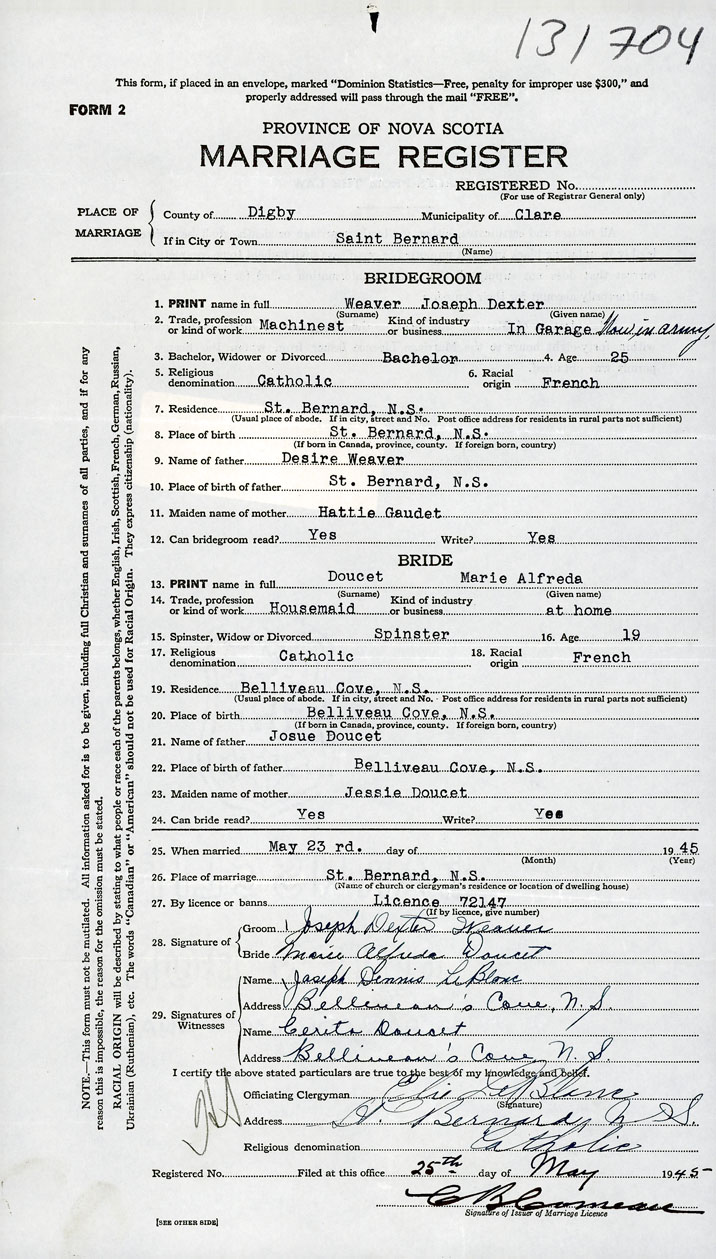 131704
This form, if placed in an envelope, marked "Dominion Statistics—Free, penalty for improper use $300," and
properly addressed will pass through the mail "FREE".
FORM 2
PROVINCE OF NOVA SCOTIA
MARRIAGE REGISTER
REGISTERED No.
(For use of Registrar General only)
PLACE OF MARRIAGE
County of Digby Municipality of Clare
If in City or Town Saint Bernard
(Name)
BRIDEGROOM
1. PRINT name in full Weaver Joseph Dexter
(Surname) (Given name)
2. Trade, profession or kind of work Machinest Kind of industry or business In Garage Now in army.
3. Bachelor, Widower or Divorced Bachelor 4. Age 25
5. Religious denomination Catholic 6. Racial origin French
7. Residence St. Bernard, N.S.
(Usual place of abode. If in city, street and No. Post office address for residents in rural parts not sufficient)
8. Place of birth St. Bernard, N.S.
(If born in Canada, province, county. If foreign born, country)
9. Name of father Desire Weaver
10. Place of birth of father St. Bernard, N.S.
11. Maiden name of mother Hattie Gaudet
12. Can bridegroom read? Yes Write? Yes
BRIDE
13. PRINT name in full Doucet Marie Alfreda
(Surname) (Given name)
14. Trade, profession or kind of work Housemaid Kind of industry or business at home
15. Spinster, Widow or Divorced Spinster 16. Age 19
17. Religious denomination Catholic 18. Racial origin French
19. Residence Belliveau Cove, N.S.
(Usual place of abode. If in city, street and No. Post office address for residents in rural parts not sufficient)
20. Place of birth Belliveau Cove, N.S.
(If born in Canada, province, county. If foreign born, country)
21. Name of father Josue Doucet
22. Place of birth of father Belliveau Cove, N.S.
23. Maiden name of mother Jessie Doucet
24. Can bride read? Yes Write? Yes
25. When married May 23 rd. day of 1945
(Month) (Year)
26. Place of marriage St. Bernard, N.S.
(Name of church or clergyman's residence or location of dwelling house)
27. By licence or banns Licence 72147
(If by licence, give number)
28. Signature of
Groom Joseph Dexter Weaver
Bride Marie Alfreda Doucet
29. Signatures of Witnesses
Name Joseph Dennis LeBlanc
Address Belliveau's Cove, N.S.
Name Cerita Doucet
Address Belliveau's Cove, N.S.
I certify the above stated particulars are true to the best of my knowledge and belief.
Officiating Clergyman Elie LeBlanc
(Signature)
Address St. Bernard, N.S.
Religious denomination Catholic
Registered No. Filed at this office 25th day of May 1945
C B Comeau
Signature of Issuer of Marriage Licence
[SEE OTHER SIDE]
NOTE.—This form must not be mutilated. All information asked for is to be given, including full Christian and surnames of all parties, and if for any
reason this is impossible, the reason for the omission must be stated.
RACIAL ORIGIN will be described by stating to what people or race each of the parents belongs, whether English, Irish, Scottish, French, German, Russian,
Ukrainian (Ruthenian), etc. The words "Canadian" or "American" should not be used for Racial Origin. They express citizenship (nationality).